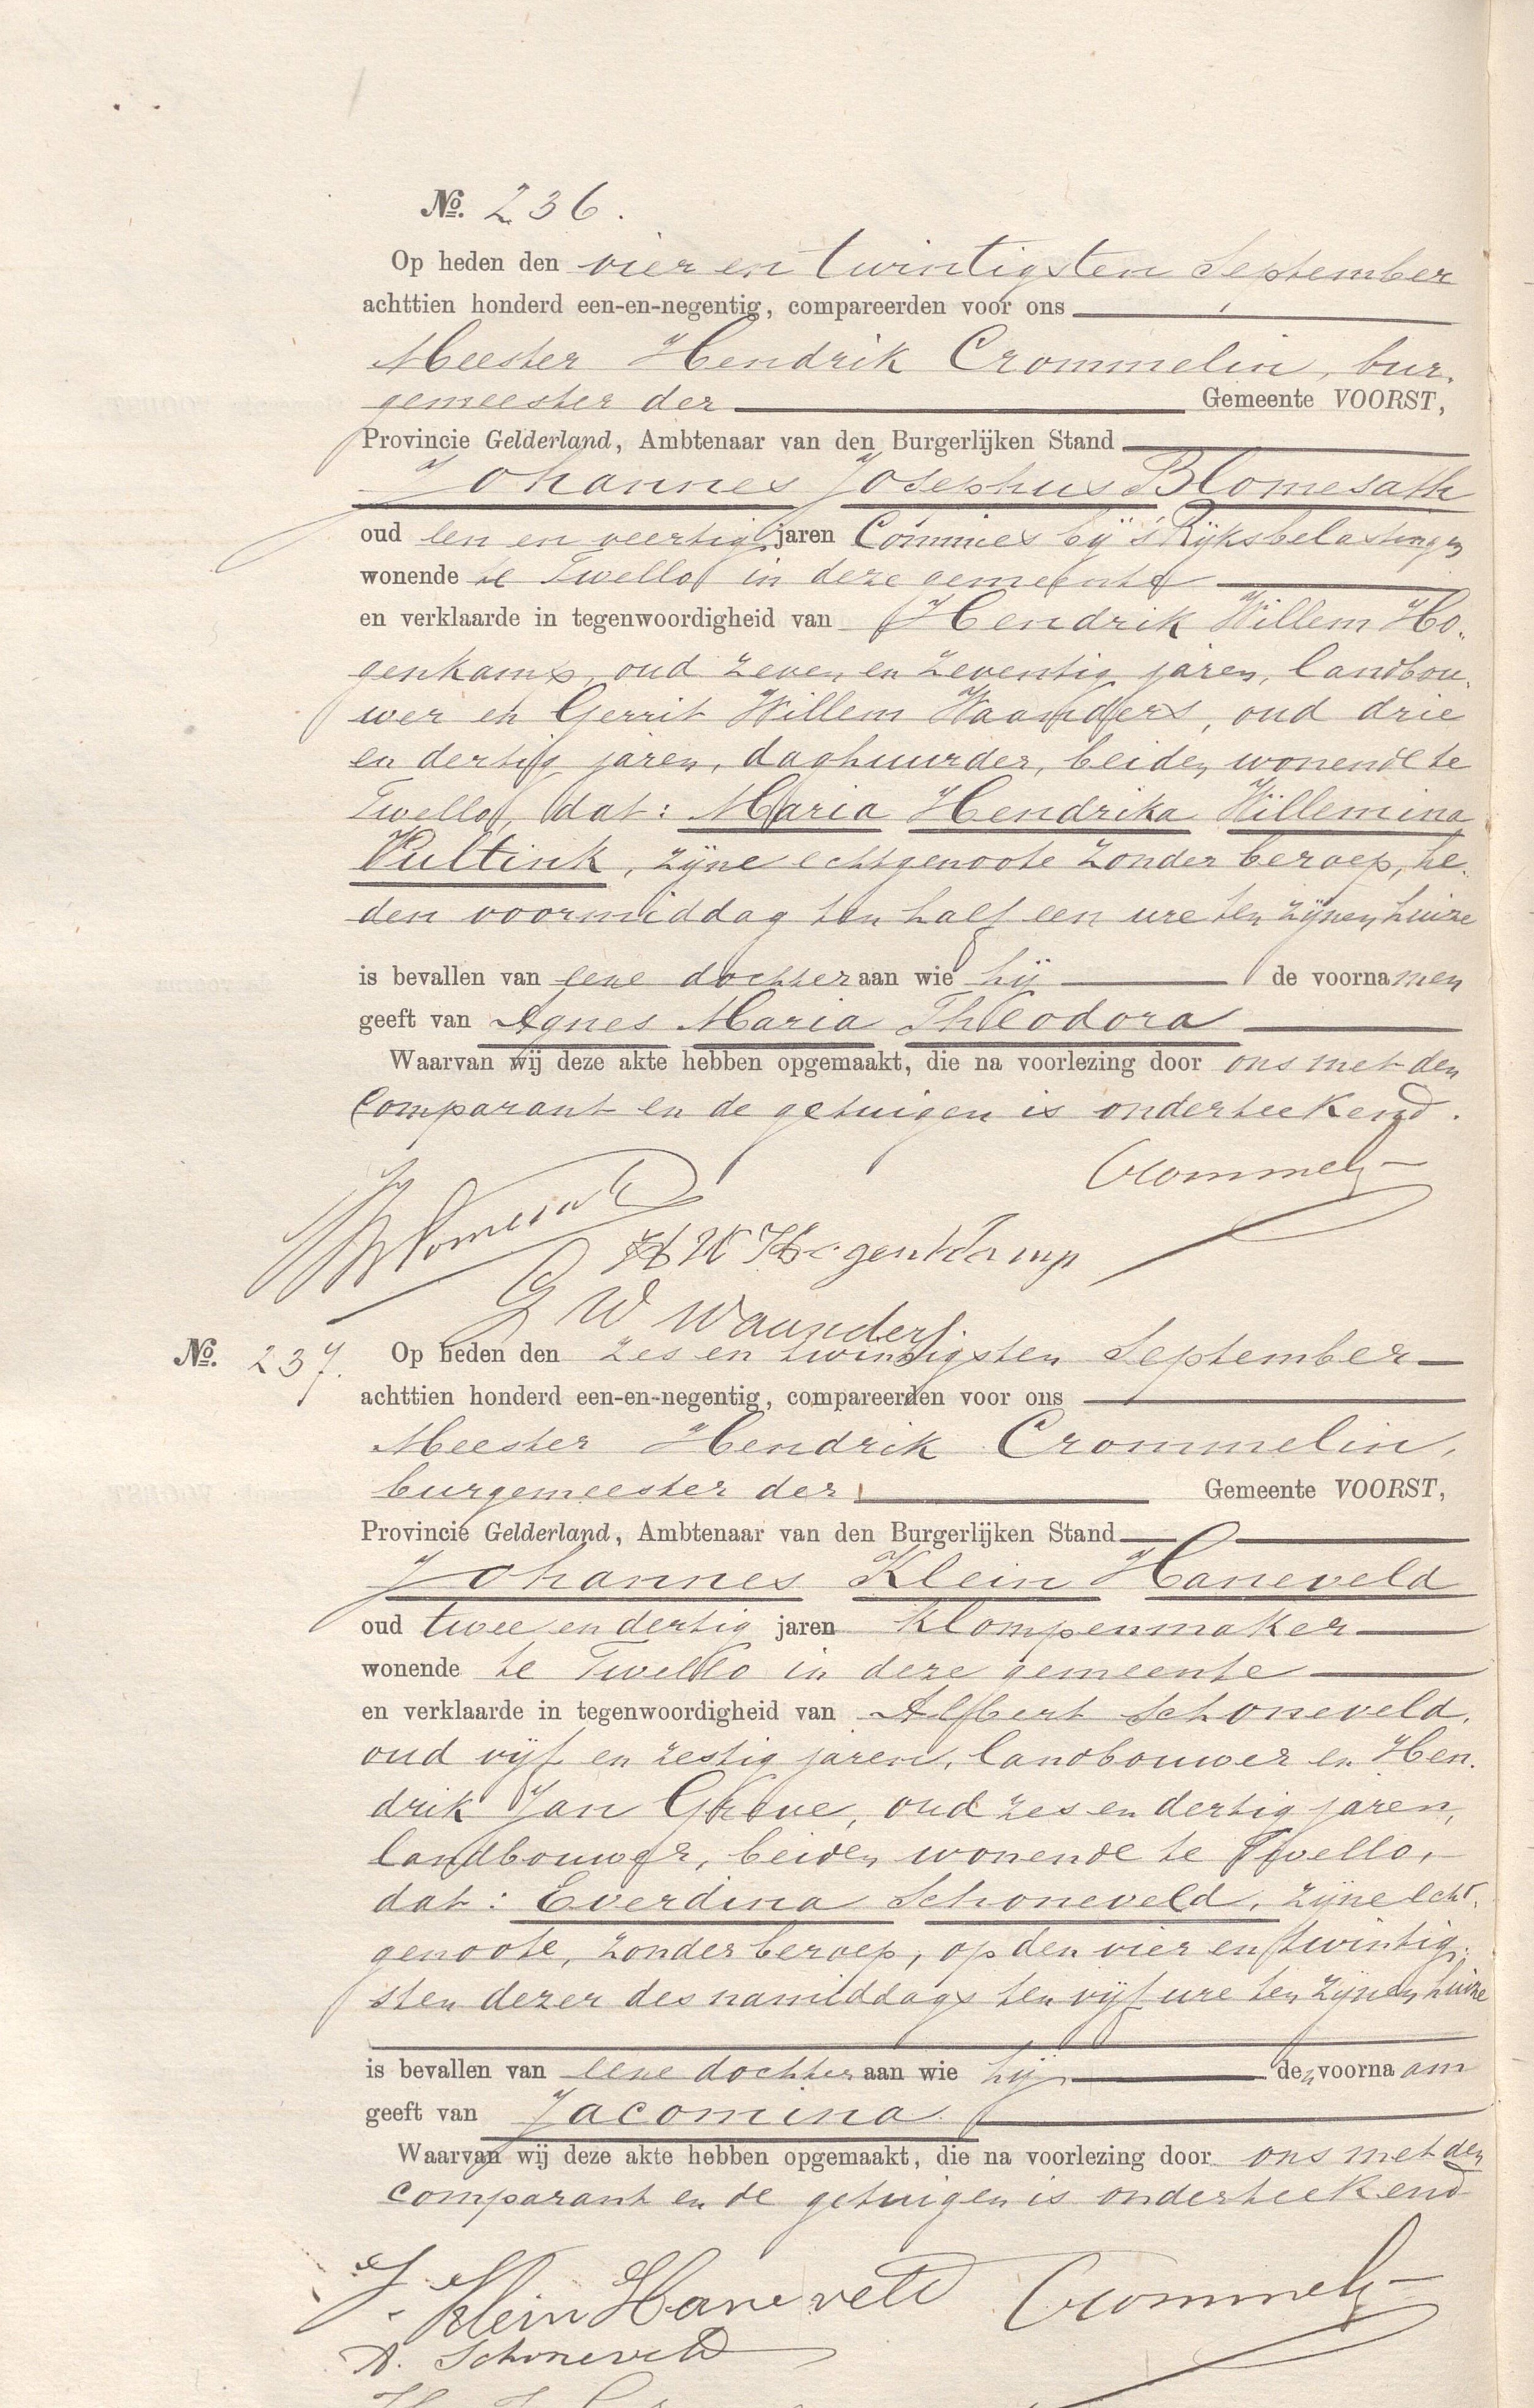 No. 236.
Op heden den vier en twintigsten September
achttien honderd een-en-negentig, compareerden voor ons
Meester Hendrik Crommelin, bur-
gemeester der Gemeente VOORST,
Provincie Gelderland, Ambtenaar van den Burgerlijken Stand
Johannes Josephus Blomesath
oud een en veertig jaren Commies bij 's Rijksbelastingen
wonende te Twello in deze gemeente
en verklaarde in tegenwoordigheid van Hendrik Willem Ho-
genkamp, oud zeven en zeventig jaren, landbou-
wer en Gerrit Willem Waanders, oud drie
en dertig jaren, daghuurder, beiden wonende te
Twello, dat: Maria Hendrika Willemina
Pultink, zijne echtgenoote zonder beroep, he-
den voormiddag ten half een ure ten zijnen huize
is bevallen van eene dochter aan wie hij de voornamen
geeft van Agnes Maria Theodora
Waarvan wij deze akte hebben opgemaakt, die na voorlezing door ons met den
Comparant en de getuigen is onderteekend.
Crommelin
JJ Blomesath
H W Hogenkamp
G W Waanders
No. 237. Op heden den zes en twintigsten September
achttien honderd een-en-negentig, compareerden voor ons
Meester Hendrik Crommelin,
burgemeester der Gemeente VOORST,
Provincie Gelderland, Ambtenaar van den Burgerlijken Stand
Johannes Klein Haneveld
oud twee en dertig jaren klompenmaker
wonende te Twello in deze gemeente
en verklaarde in tegenwoordigheid van Albert Schoneveld,
oud vijf en zestig jaren, landbouwer en Hen-
drik Jan Greve, oud zes en dertig jaren,
landbouwer, beiden wonende te Twello,
dat: Everdina Schoneveld, zijne echt-
genoote, zonder beroep, op den vier en twintig-
sten dezer des namiddags ten vijf ure ten zijnen huize
is bevallen van eene dochter aan wie hij den voornaam
geeft van Jacomina
Waarvan wij deze akte hebben opgemaakt, die na voorlezing door ons met den
comparant en de getuigen is onderteekend
J. Klein Haneveld Crommelin
A. Schoneveld